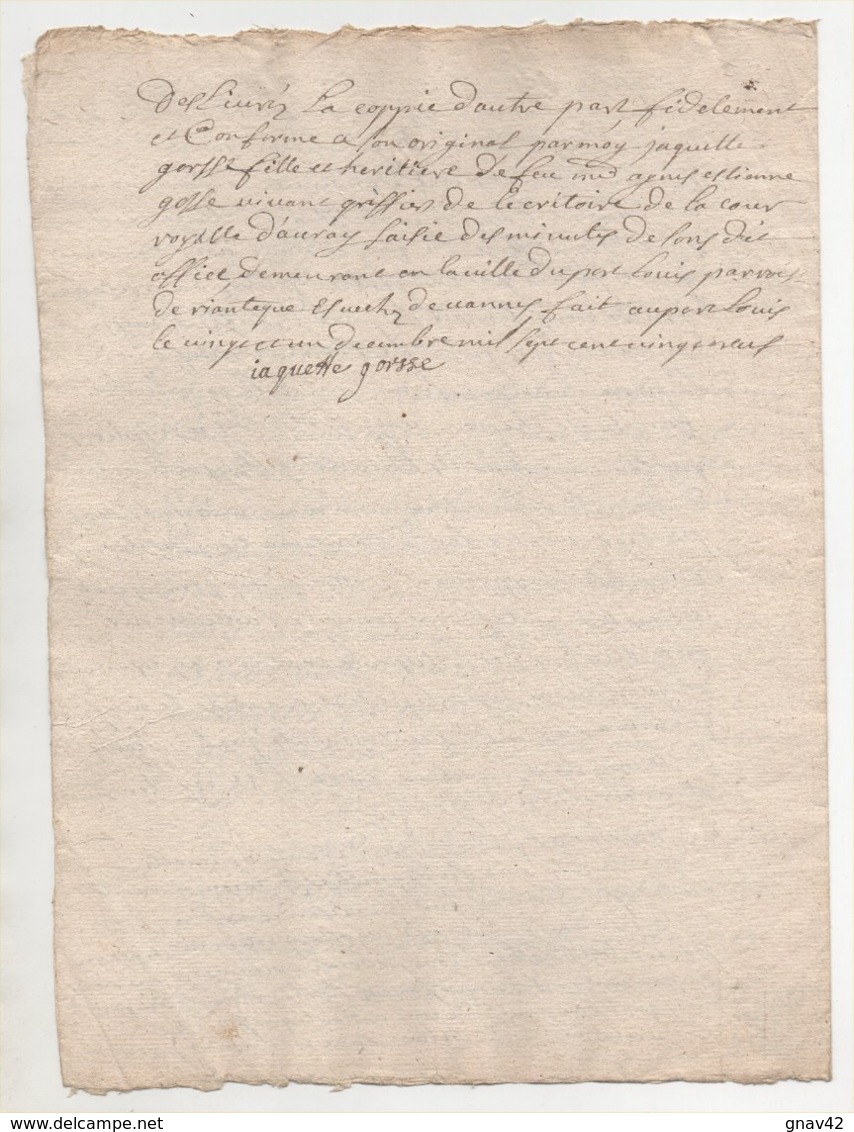 Deslivré la coppie d'autre part fidelement
et Conforme a son original par moy jaquette
gorsse fille et heritiere de feu agnus estienne
gosse vivant griffier de lecritoire de la cour
royalle d'auray saisie des minutes de sons dit
office demeurant en la ville du port Louis parrois
de rianteque Esvech de vannes, fait au port Louis
le vingt et un decembre mil sept cent vingt
iaquette gorsse
delcampe.net
gnav42